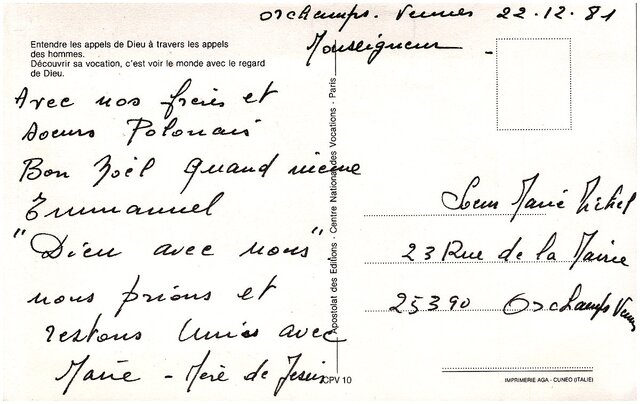 Orchamps-Vennes 22.12.81
Monseigneur -
Entendre les appels de Dieu à travers les appels
des hommes.
Découvrir sa vocation, c'est voir le monde avec le regard
de Dieu.
Avec nos frères et
soeurs Polonais
Bon Noël quand même
Emmanuel
"Dieu avec nous"
nous prions et
restons unis avec
Marie - Mère de Jésus
Apostolat des Editions - Centre National des Vocations - Paris
CPV 10
Soeur Marie Michel
23 Rue de la Mairie
25390 Orchamps Vennes
IMPRIMERIE AGA - CUNEO (ITALIE)